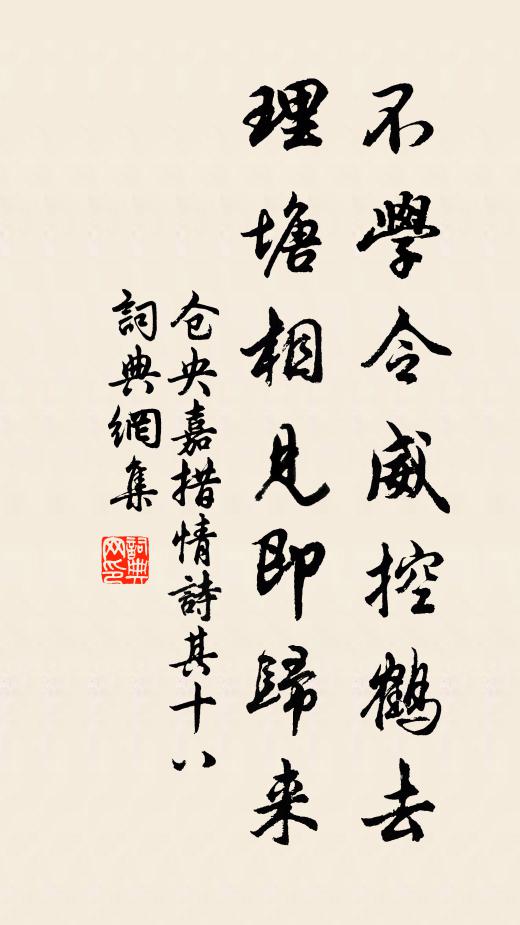 不學令威控鶴去
理塘相見即歸来
仓央嘉措情詩其十八
詞典網集
詞典网印